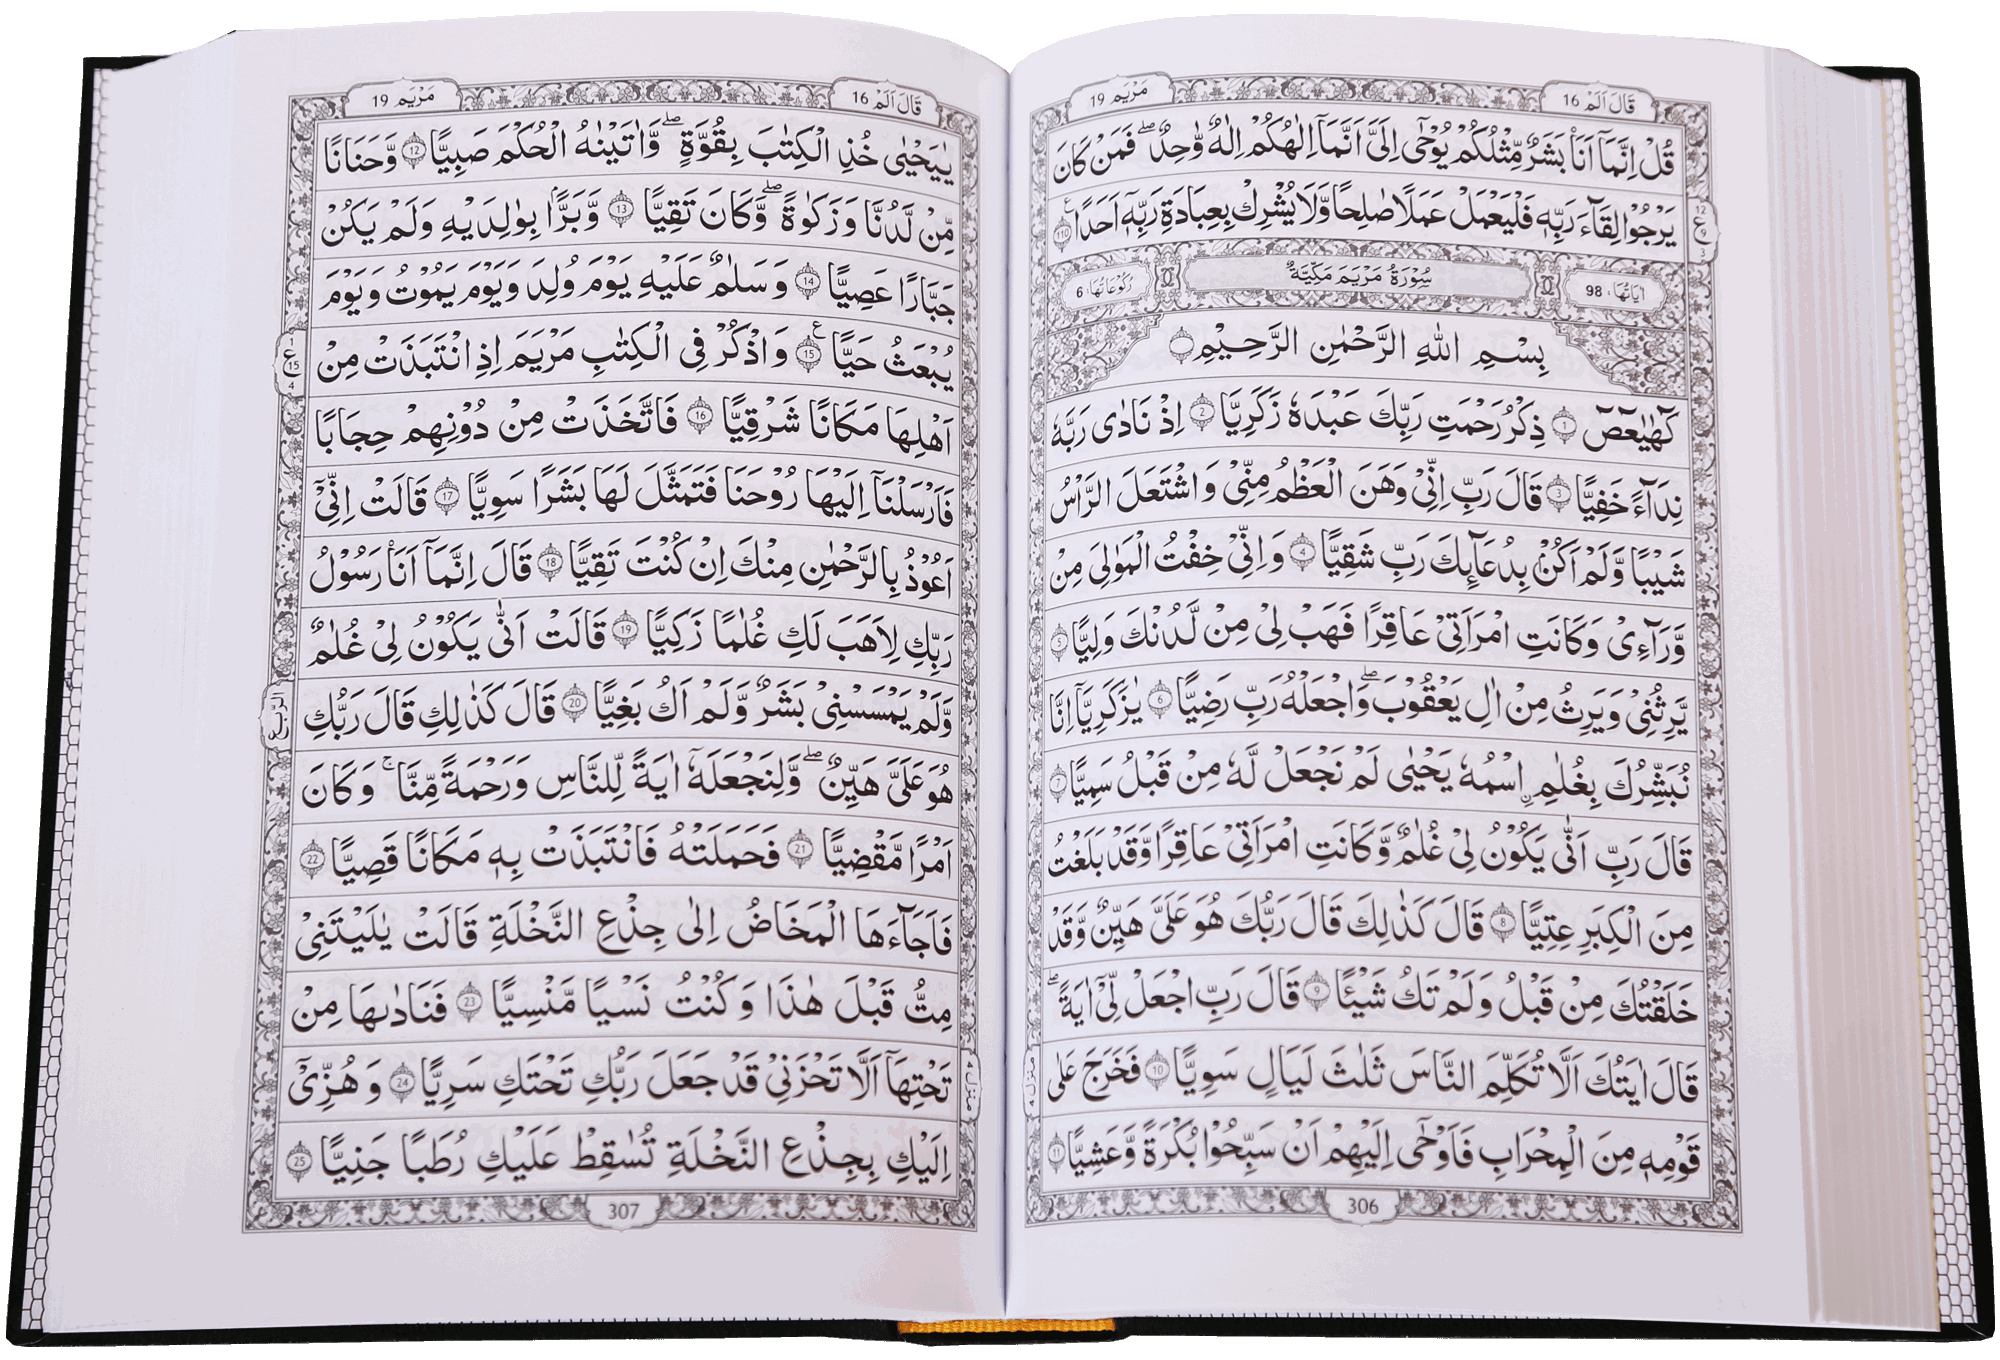 قَالَ اَلَمْ 16
مَرْيَم 19
قُلْ اِنَّمَآ اَنَا۠ بَشَرٌ مِّثْلُكُمْ يُوْحٰٓى اِلَىَّ اَنَّمَآ اِلٰهُكُمْ اِلٰهٌ وَّاحِدٌ ۖ فَمَنْ كَانَ
يَرْجُوْا لِقَآءَ رَبِّهٖ فَلْيَعْمَلْ عَمَلًا صَالِحًا وَّلَا يُشْرِكْ بِعِبَادَةِ رَبِّهٖٓ اَحَدًا ۧ 110
12 ع 9 3
اٰيَاتُهَا: 98 سُوْرَةُ مَرْيَمَ مَكِّيَّةٌ رُكُوْعَاتُهَا: 6
بِسْمِ اللّٰهِ الرَّحْمٰنِ الرَّحِيْمِ
كٓهٰيٰعٓصٓ 1 ذِكْرُ رَحْمَتِ رَبِّكَ عَبْدَهٗ زَكَرِيَّا 2 اِذْ نَادٰى رَبَّهٗ
نِدَآءً خَفِيًّا 3 قَالَ رَبِّ اِنِّىْ وَهَنَ الْعَظْمُ مِنِّىْ وَاشْتَعَلَ الرَّاْسُ
شَيْبًا وَّلَمْ اَكُنْۢ بِدُعَآئِكَ رَبِّ شَقِيًّا 4 وَاِنِّىْ خِفْتُ الْمَوَالِىَ مِنْ
وَّرَآءِىْ وَكَانَتِ امْرَاَتِىْ عَاقِرًا فَهَبْ لِىْ مِنْ لَّدُنْكَ وَلِيًّا 5
يَّرِثُنِىْ وَيَرِثُ مِنْ اٰلِ يَعْقُوْبَ ۖ وَاجْعَلْهُ رَبِّ رَضِيًّا 6 يٰزَكَرِيَّآ اِنَّا
نُبَشِّرُكَ بِغُلٰمِ ِۨاسْمُهٗ يَحْيٰى لَمْ نَجْعَلْ لَّهٗ مِنْ قَبْلُ سَمِيًّا 7
قَالَ رَبِّ اَنّٰى يَكُوْنُ لِىْ غُلٰمٌ وَّكَانَتِ امْرَاَتِىْ عَاقِرًا وَّقَدْ بَلَغْتُ
مِنَ الْكِبَرِ عِتِيًّا 8 قَالَ كَذٰلِكَ قَالَ رَبُّكَ هُوَ عَلَىَّ هَيِّنٌ وَّقَدْ
خَلَقْتُكَ مِنْ قَبْلُ وَلَمْ تَكُ شَيْئًا 9 قَالَ رَبِّ اجْعَلْ لِّىْٓ اٰيَةً ۖ
قَالَ اٰيَتُكَ اَلَّا تُكَلِّمَ النَّاسَ ثَلٰثَ لَيَالٍ سَوِيًّا 10 فَخَرَجَ عَلٰى
قَوْمِهٖ مِنَ الْمِحْرَابِ فَاَوْحٰٓى اِلَيْهِمْ اَنْ سَبِّحُوْا بُكْرَةً وَّعَشِيًّا 11
منزل ٤
306
قَالَ اَلَمْ 16
مَرْيَم 19
يٰيَحْيٰى خُذِ الْكِتٰبَ بِقُوَّةٍ ۖ وَّاٰتَيْنٰهُ الْحُكْمَ صَبِيًّا 12 وَّحَنَانًا
مِّنْ لَّدُنَّا وَزَكٰوةً ۖ وَّكَانَ تَقِيًّا 13 وَّبَرًّاۢ بِوٰلِدَيْهِ وَلَمْ يَكُنْ
جَبَّارًا عَصِيًّا 14 وَسَلٰمٌ عَلَيْهِ يَوْمَ وُلِدَ وَيَوْمَ يَمُوْتُ وَيَوْمَ
يُبْعَثُ حَيًّا ۧ 15 وَاذْكُرْ فِى الْكِتٰبِ مَرْيَمَ اِذِ انْتَبَذَتْ مِنْ
1 ع 15 4
اَهْلِهَا مَكَانًا شَرْقِيًّا 16 فَاتَّخَذَتْ مِنْ دُوْنِهِمْ حِجَابًا
فَاَرْسَلْنَآ اِلَيْهَا رُوْحَنَا فَتَمَثَّلَ لَهَا بَشَرًا سَوِيًّا 17 قَالَتْ اِنِّىْٓ
اَعُوْذُ بِالرَّحْمٰنِ مِنْكَ اِنْ كُنْتَ تَقِيًّا 18 قَالَ اِنَّمَآ اَنَا۠ رَسُوْلُ
رَبِّكِ لِاَهَبَ لَكِ غُلٰمًا زَكِيًّا 19 قَالَتْ اَنّٰى يَكُوْنُ لِىْ غُلٰمٌ
وَّلَمْ يَمْسَسْنِىْ بَشَرٌ وَّلَمْ اَكُ بَغِيًّا 20 قَالَ كَذٰلِكِ قَالَ رَبُّكِ
الربع
هُوَ عَلَىَّ هَيِّنٌ ۖ وَّلِنَجْعَلَهٗٓ اٰيَةً لِّلنَّاسِ وَرَحْمَةً مِّنَّا ۚ وَكَانَ
اَمْرًا مَّقْضِيًّا 21 فَحَمَلَتْهُ فَانْتَبَذَتْ بِهٖ مَكَانًا قَصِيًّا 22
فَاَجَآءَهَا الْمَخَاضُ اِلٰى جِذْعِ النَّخْلَةِ قَالَتْ يٰلَيْتَنِىْ
مِتُّ قَبْلَ هٰذَا وَكُنْتُ نَسْيًا مَّنْسِيًّا 23 فَنَادٰىهَا مِنْ
تَحْتِهَآ اَلَّا تَحْزَنِىْ قَدْ جَعَلَ رَبُّكِ تَحْتَكِ سَرِيًّا 24 وَهُزِّىْٓ
اِلَيْكِ بِجِذْعِ النَّخْلَةِ تُسٰقِطْ عَلَيْكِ رُطَبًا جَنِيًّا 25
منزل ٤
307